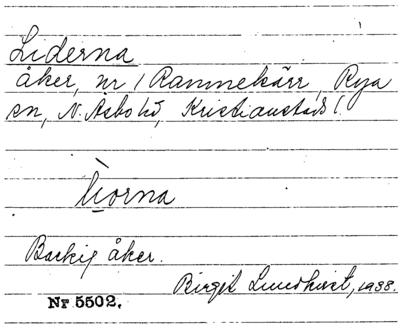 Liderna
åker, nr 1 Rammekärr, Rya
sn, N. Åsbo hd, Kristianstads l.
Backig åker.
Birgit Lundkvist, 1938.
Nr 5502.